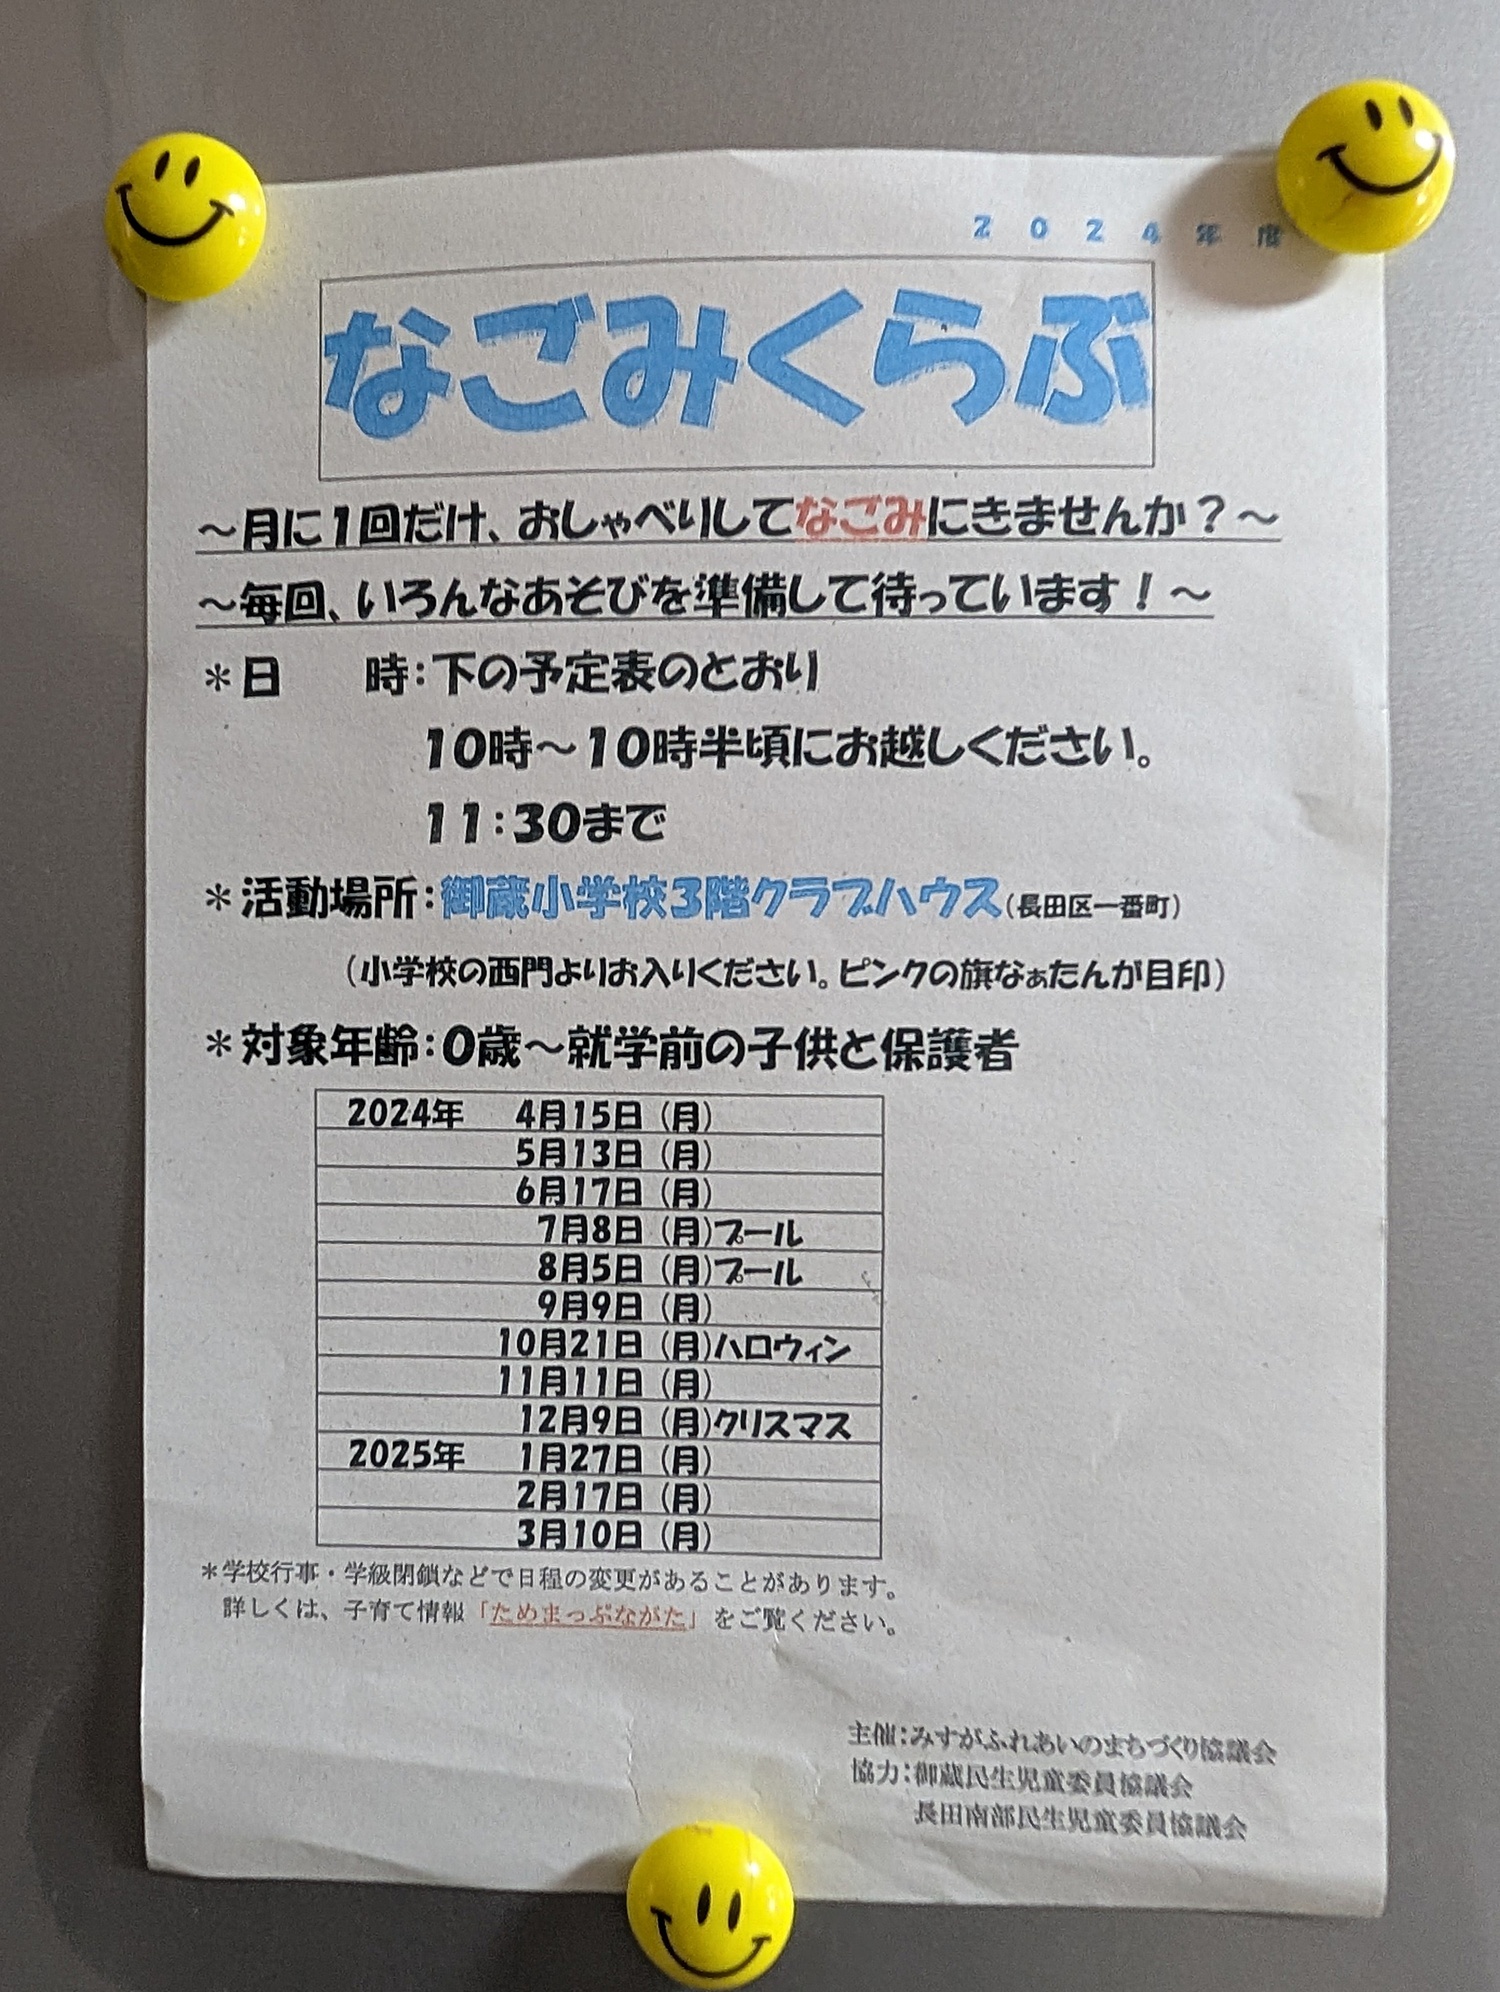 2024年度
なごみくらぶ
～月に1回だけ、おしゃべりしてなごみにきませんか？～
～毎回、いろんなあそびを準備して待っています！～
＊日　　時：下の予定表のとおり
10時～10時半頃にお越しください。
11：30まで
＊活動場所：御蔵小学校3階クラブハウス（長田区一番町）
（小学校の西門よりお入りください。ピンクの旗なぁたんが目印）
＊対象年齢：0歳～就学前の子供と保護者
2024年　4月15日（月）
5月13日（月）
6月17日（月）
7月8日（月）プール
8月5日（月）プール
9月9日（月）
10月21日（月）ハロウィン
11月11日（月）
12月9日（月）クリスマス
2025年　1月27日（月）
2月17日（月）
3月10日（月）
＊学校行事・学級閉鎖などで日程の変更があることがあります。
詳しくは、子育て情報「ためまっぷながた」をご覧ください。
主催：みすがふれあいのまちづくり協議会
協力：御蔵民生児童委員協議会
長田南部民生児童委員協議会